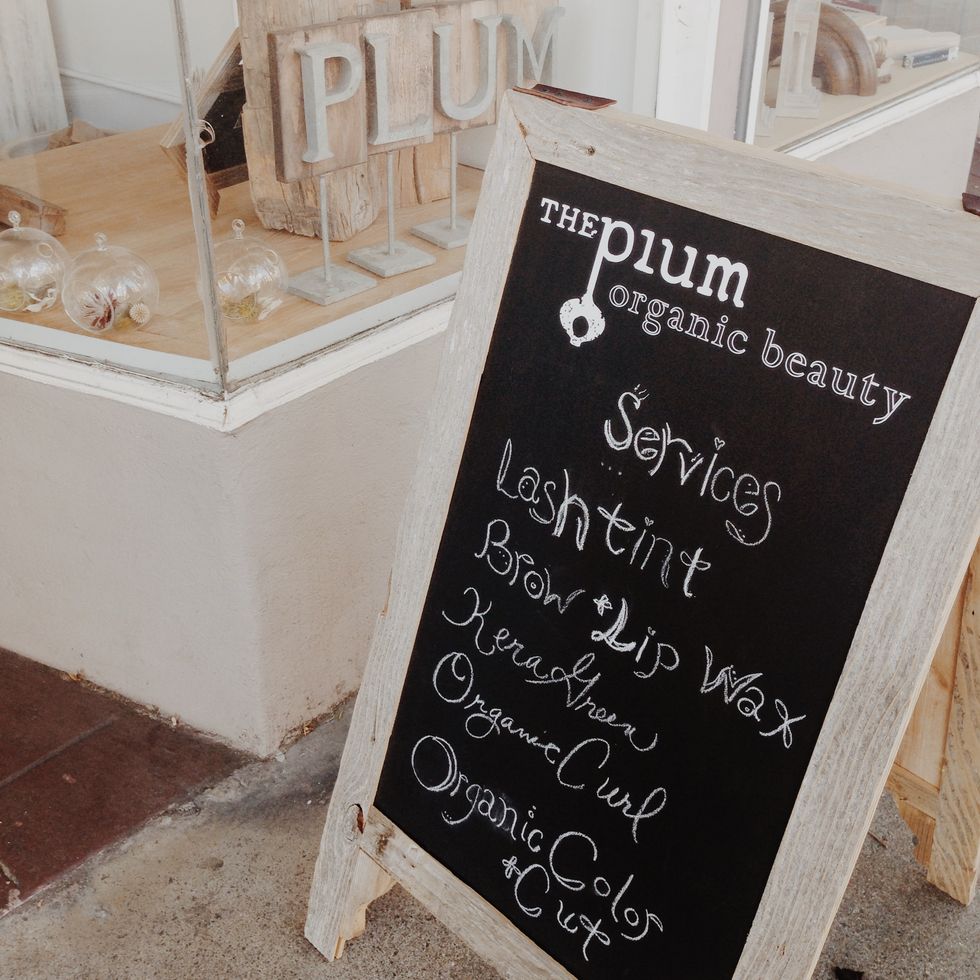 PLUM
THE plum
organic beauty
Services
Lash tint
Brow + Lip Wax
KeraGreen
Organic Curl
Organic Color
+ Cut